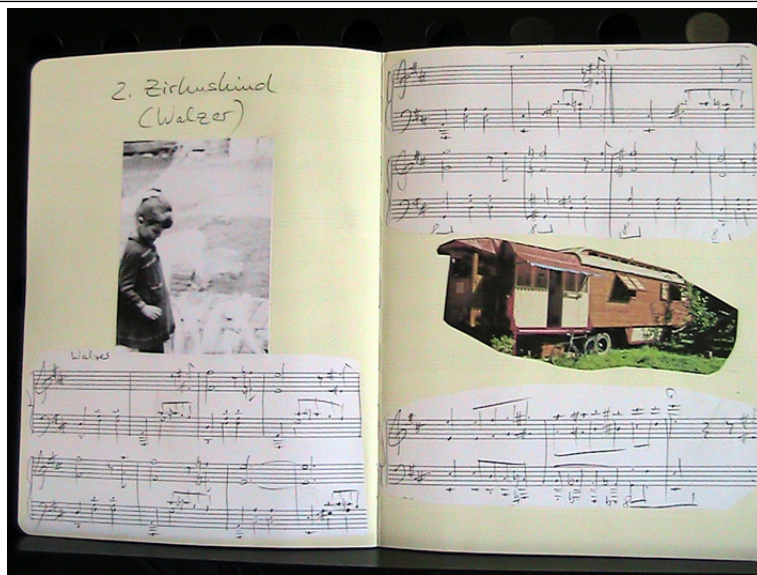 2. Zirkuskind
(Walzer)
Walzer